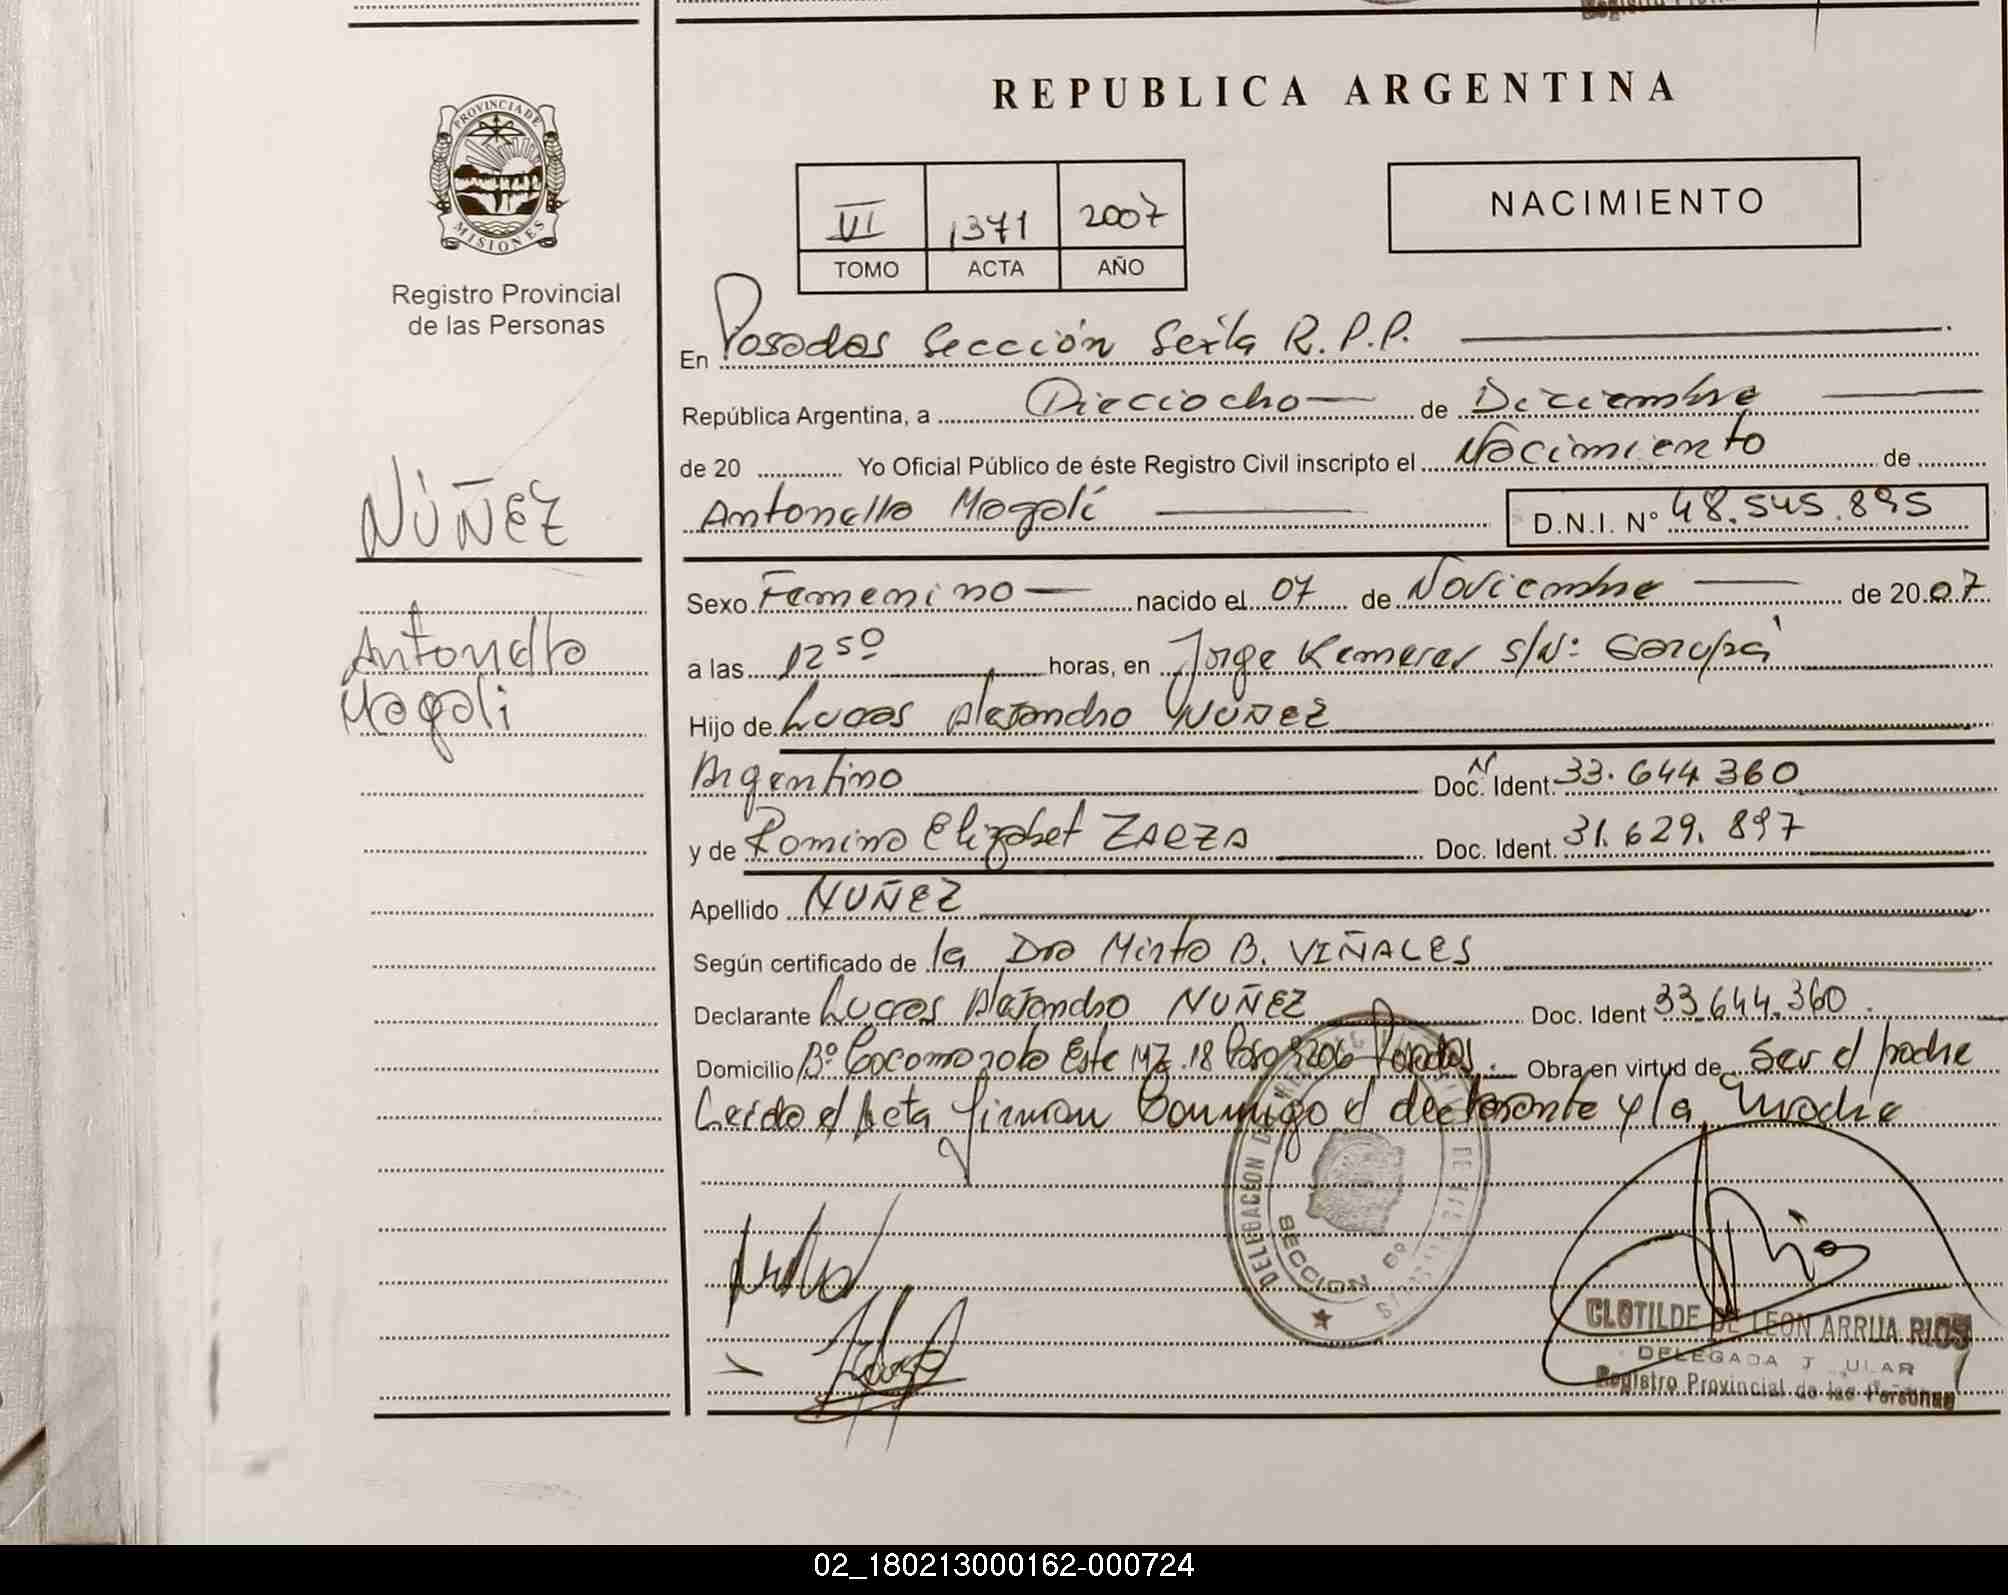 REPUBLICA ARGENTINA
PROVINCIA DE
MISIONES
Registro Provincial
de las Personas
VI 1371 2007
TOMO ACTA AÑO
NACIMIENTO
En Posadas Sección Sexta R.P.P.
República Argentina, a Dieciocho de Diciembre
de 20 Yo Oficial Público de éste Registro Civil inscripto el Nacimiento de
Antonella Magalí D.N.I. Nº 48.545.895
NÚÑEZ
Antonella
Magali
Sexo Femenino nacido el 07 de Noviembre de 2007
a las 12 50 horas, en Jorge Kemerer s/Nº Garupá
Hijo de Lucas Alejandro NUÑEZ
Argentino Doc. Ident. 33.644 360
y de Romina Elizabet ZARZA Doc. Ident. 31.629.897
Apellido NUÑEZ
Según certificado de la Dra Mirta B. VIÑALES
Declarante Lucas Alejandro NUÑEZ Doc. Ident 33.644.360.
Domicilio Bº Cocomarola Este MZ.18 Posadas. Obra en virtud de Ser el padre
Leida el Acta firman Conmigo el declarante y la Madre
DELEGACION
SECCION 6º
CLOTILDE DE LEON ARRUA RIOS
DELEGADA
Registro Provincial de las Personas
02_180213000162-000724